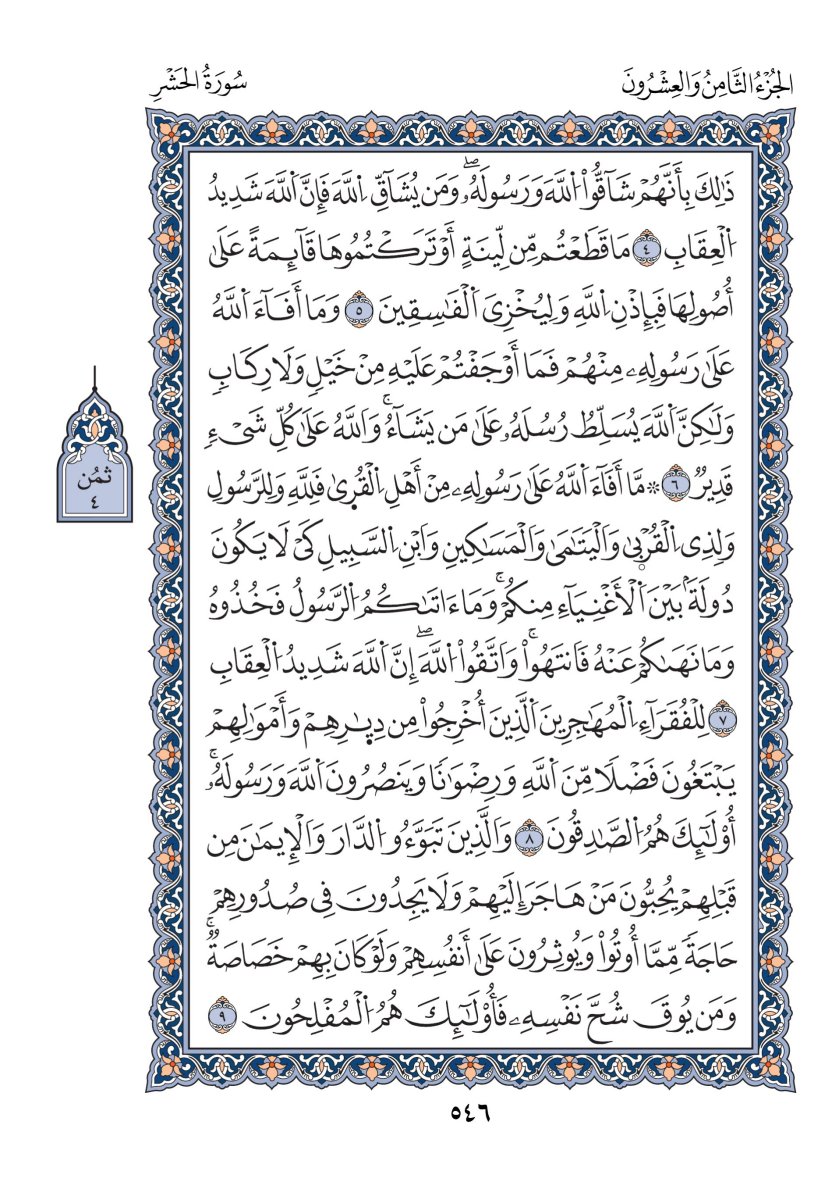 الجُزْءُ الثَّامِنُ وَالعِشْرُونَ
سُورَةُ الحَشْرِ
ذَٰلِكَ بِأَنَّهُمْ شَآقُّوا۟ اُ۬للَّهَ وَرَسُولَهُۥۖ وَمَن يُشَآقِّ اِ۬للَّهَ فَإِنَّ اَ۬للَّهَ شَدِيدُ
اُ۬لْعِقَابِ ٤ مَا قَطَعْتُم مِّن لِّينَةٍ أَوْ تَرَكْتُمُوهَا قَآئِمَةً عَلَىٰٓ
أُصُولِهَا فَبِإِذْنِ اِ۬للَّهِ وَلِيُخْزِيَ اَ۬لْفَٰسِقِينَ ٥ وَمَآ أَفَآءَ اَ۬للَّهُ
عَلَىٰ رَسُولِهِۦ مِنْهُمْ فَمَآ أَوْجَفْتُمْ عَلَيْهِ مِنْ خَيْلٍ وَلَا رِكَابٍ
وَلَٰكِنَّ اَ۬للَّهَ يُسَلِّطُ رُسُلَهُۥ عَلَىٰ مَن يَشَآءُۚ وَاللَّهُ عَلَىٰ كُلِّ شَيْءٍ
قَدِيرٌ ٦ ۞ مَّآ أَفَآءَ اَ۬للَّهُ عَلَىٰ رَسُولِهِۦ مِنْ أَهْلِ اِ۬لْقُر۪ىٰ فَلِلَّهِ وَلِلرَّسُولِ
وَلِذِي اِ۬لْقُرْبىٰ وَالْيَتَٰمَىٰ وَالْمَسَٰكِينِ وَابْنِ اِ۬لسَّبِيلِ كَيْ لَا يَكُونَ
دُولَةَۢ بَيْنَ اَ۬لْأَغْنِيَآءِ مِنكُمْۚ وَمَآ ءَاتَىٰكُمُ اُ۬لرَّسُولُ فَخُذُوهُ
وَمَا نَهَىٰكُمْ عَنْهُ فَانتَهُوا۟ۚ وَاتَّقُوا۟ اُ۬للَّهَۖ إِنَّ اَ۬للَّهَ شَدِيدُ اُ۬لْعِقَابِ
٧ لِلْفُقَرَآءِ اِ۬لْمُهَٰجِرِينَ اَ۬لَّذِينَ أُخْرِجُوا۟ مِن دِيٰ۪رِهِمْ وَأَمْوَٰلِهِمْ
يَبْتَغُونَ فَضْلًا مِّنَ اَ۬للَّهِ وَرِضْوَٰنًا وَيَنصُرُونَ اَ۬للَّهَ وَرَسُولَهُۥٓۚ
أُو۟لَٰٓئِكَ هُمُ اُ۬لصَّٰدِقُونَ ٨ وَالَّذِينَ تَبَوَّءُو اُ۬لدَّارَ وَالْإِيمَٰنَ مِن
قَبْلِهِمْ يُحِبُّونَ مَنْ هَاجَرَ إِلَيْهِمْ وَلَا يَجِدُونَ فِي صُدُورِهِمْ
حَاجَةً مِّمَّآ أُوتُوا۟ وَيُوثِرُونَ عَلَىٰٓ أَنفُسِهِمْ وَلَوْ كَانَ بِهِمْ خَصَاصَةٌۚ
وَمَن يُوقَ شُحَّ نَفْسِهِۦ فَأُو۟لَٰٓئِكَ هُمُ اُ۬لْمُفْلِحُونَ ٩
ثمُن
٤
٥٤٦